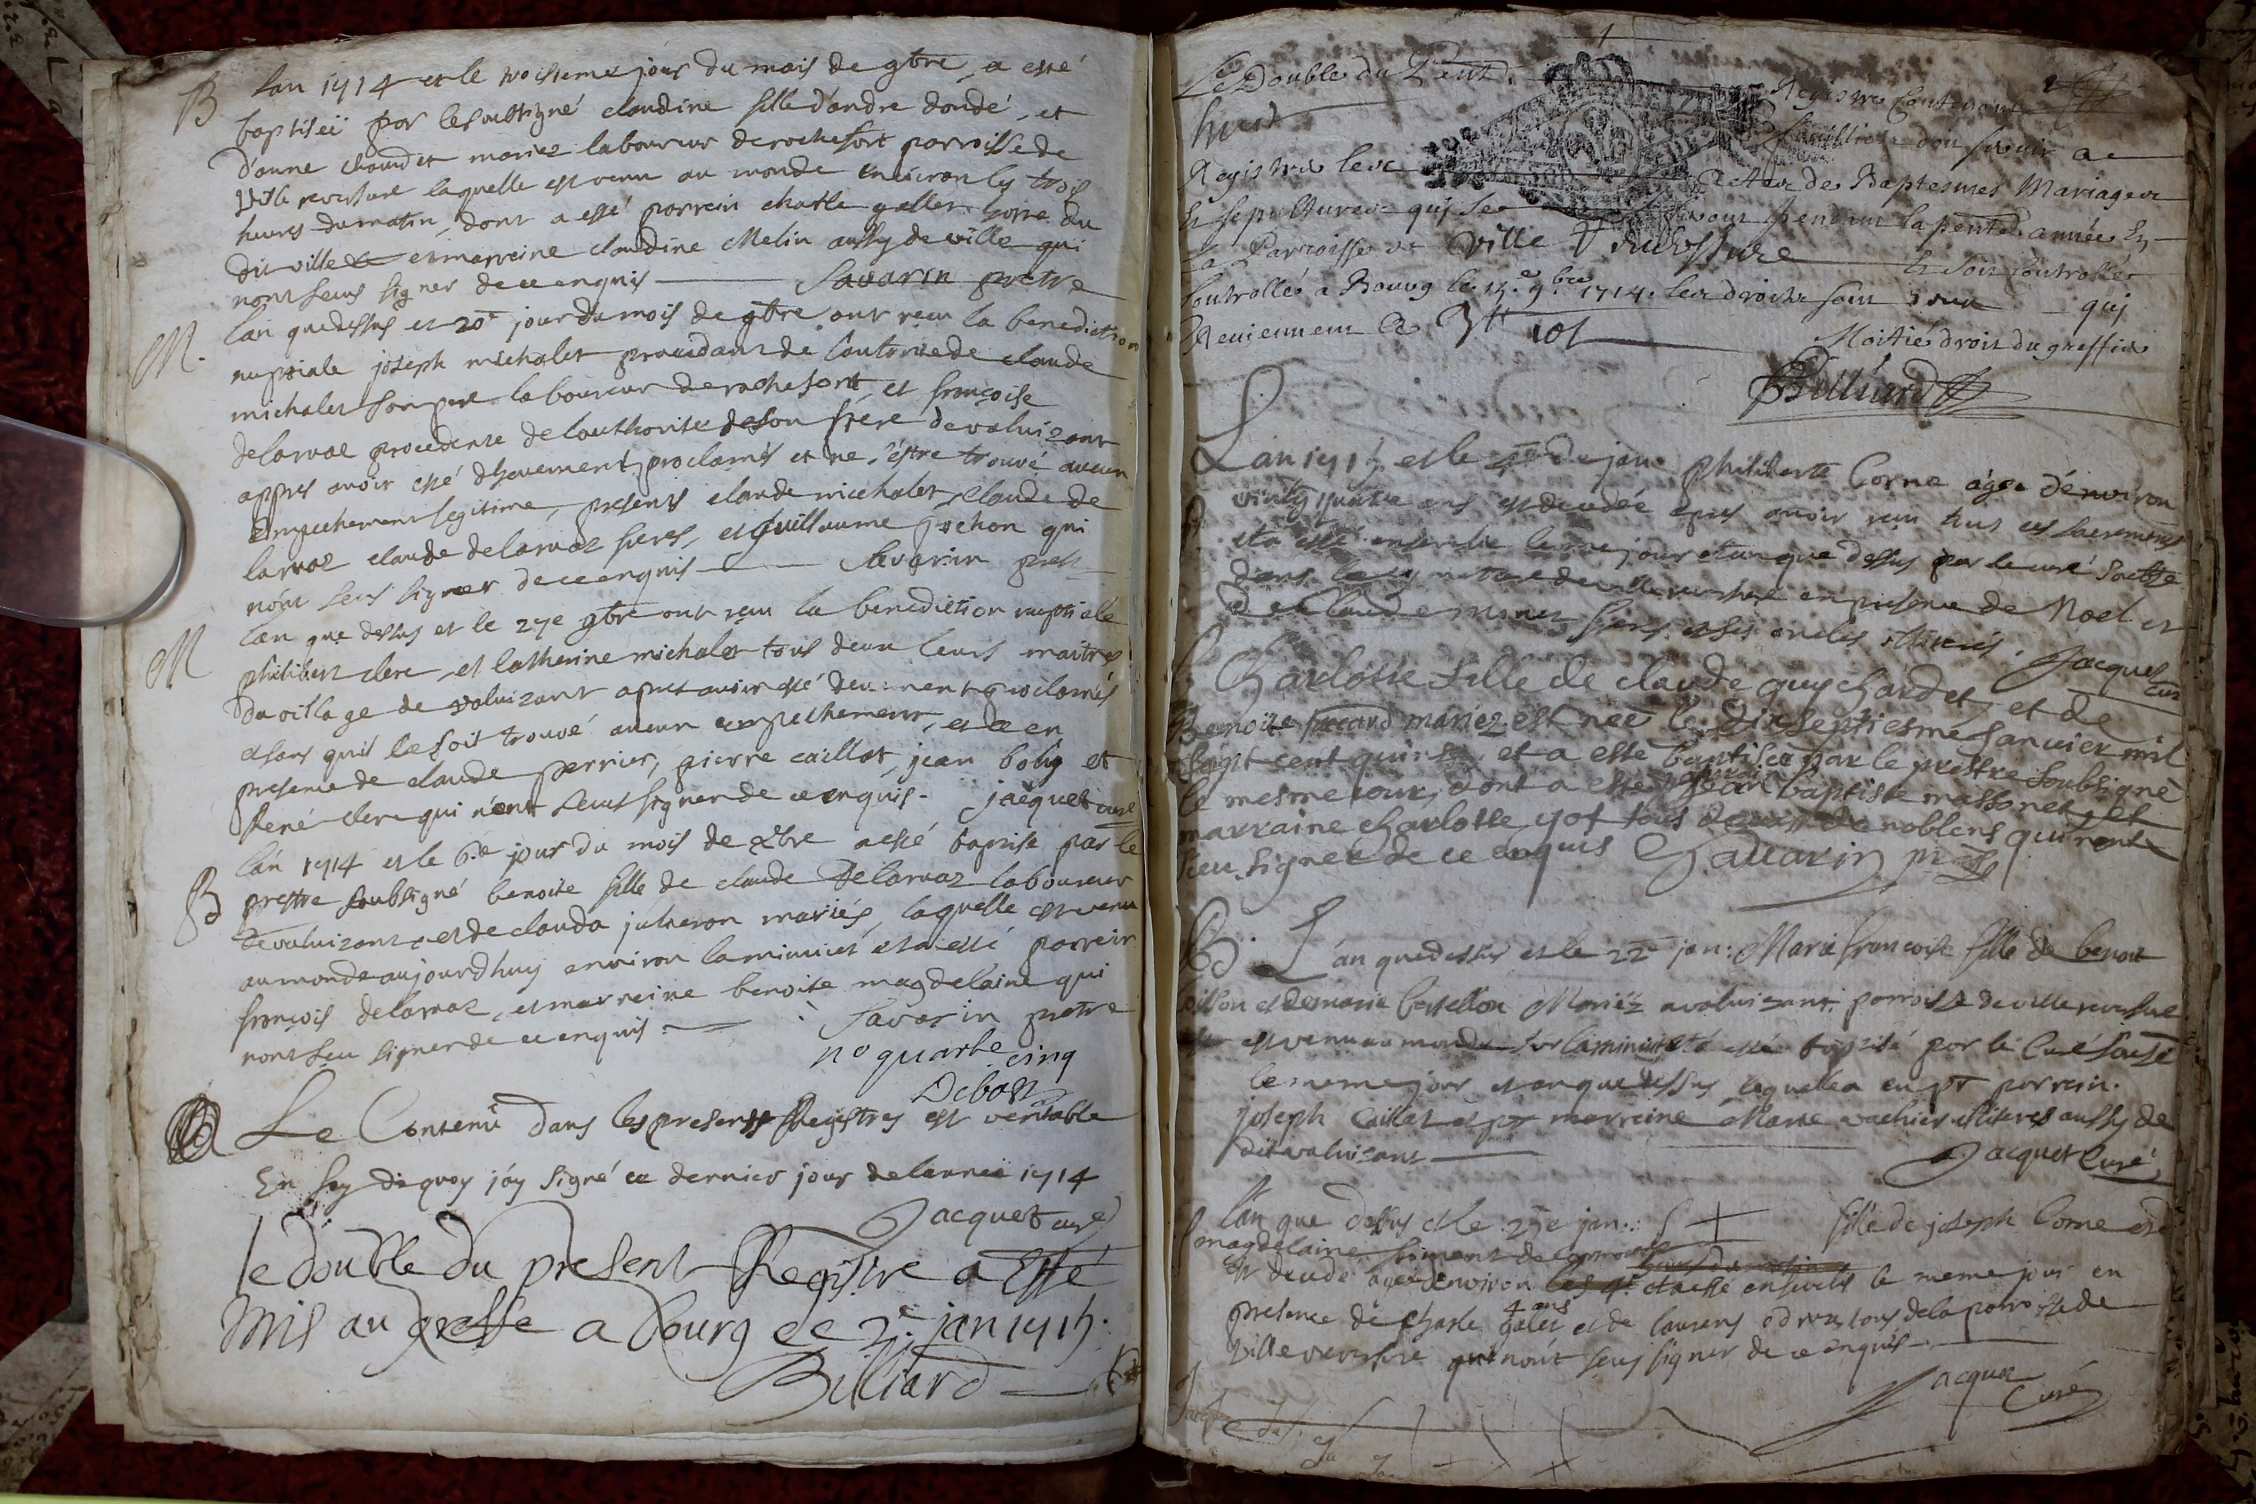 B
lan 1714 et le troisieme jour du mois de 9bre a esté
baptiseï par le soussigné claudine fille d'andre dondé, et
d'anne chaudet mariez laboureur de rochefort parroisse de
ville reversure laquelle est venu au monde environ les trois
heures du matin, dont a esté parrein charle gallet corne du
dit ville et marreine claudine Melin aussy de ville qui
nont seus signer de ce enquis Savarin prêtre
M.
lan que dessus et 20e jour du mois de 9bre ont reçu la benediction
nuptiale joseph michalet procedant de l'autorité de claude
michalet son pere laboureur de rochefort, et françoise
delarvaz procedente de lauthorité de son frere de valuizant
appres avoir esté dheuement proclamés et ne s'éstre trouvé aucun
empechement legitime, presents claude michalet, claude de
larvaz claude delarvaz freres, et Guillaume Jochon qui
nónt seus signer de ce enquis Savarin pretr
M
lan que dessus et le 27e 9bre ont reçu la benediction nuptiale
philibert clerc, et catherine michalet tous deux leurs maitres
du village de valuizant apres avoir esté deuement proclamés
et sans quil se soit trouvé aucun empechement, et ce en
presence de claude perrier, pierre caillat, jean boly et
René clerc qui n'ont seus signer de ce enquis. jacquet curé
B
lán 1714 et le 6.e jour du mois de xbre a esté baptisé par le
prestre soubsigné benoite fille de claude Delarvaz laboureur
de valuizant et de clauda juheron mariés, laquelle est venu
au monde aujourdhuy environ la minuict et a esté parrein
françois delarvaz, et marreine benoite magdelaine qui
nont seu signer de ce enquis. Savarin prêtre
no quarte cinq
Le Contenu dans les presents Registres est veritable
En foy de quoy j'ay signé ce dernier jour de lanneé 1714
Jacquet curé
le double du present Registre a esté
Mis au greffe a bourg ce 2.e jan 1715.
Billiard
Le Double du
Registre Contenant
huict
Registre les
Actes de Baptesmes Mariages
Et sepultures qui se feront pendant la pente année En
La Parroisse de Ville Reversure Et soit controllé
Controllé a Bourg le 15.e 9.bre 1714. les droits sont qui
Reviennent a 3tt 10s
Moitié droit du greffier
Billiard
Lan 1715 et le jan philiberte Corne agée d'environ
vintz quatre ans est decedée apres avoir reçu tous ces sacrements
et a esté ensevelie le me jour et an que dessus par le curé Soubs
dans le cymetiere de ville reversure en presence de Noel et
de claude ses oncles illiterés. Jacquet
cur
B
Charlotte fille de claude guychardet, et de
Benoite mariez est neé le dixseptiesme Janvier mil
sept cent quinze, et a esté baptisée par le prestre soubsigné
le mesme jour, dont a esté parrain Jean baptiste massonet, et
marraine charlotte yot tous de noblens qui nont
sceu signer de ce enquis Savarin pr
B.
Lán que dessus et le 22e jan: Marie françoise fille de benoit
et de marie bertellon Mariéz a valuizant parroisse de ville reversure
est venu au monde sur la minuict et a esté baptisé par le Curé Sousé
le meme jour et an que dessus, laquelle a eu pr parrein.
joseph Caillat et pr marreine Marie vachier illiterés aussy de
dit valuizant Jacquet Curé
lán que dessus et le 25e jan: fille de joseph Corne et d
magdelaine
est decedé ageé denviron 4 ans et a esté ensevelis le meme jour en
presence de charle galet et de laurens tous de la parroisse de
Ville reversure qui nónt seus signer de ce enquis
Jacquet
Curé